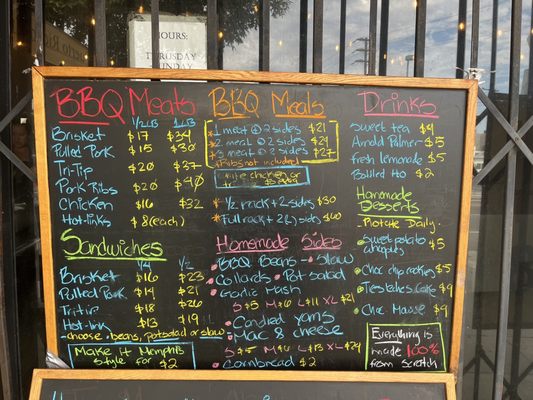 HOURS:
THURSDAY
SUNDAY
BBQ Meats
1/2 LB 1 LB
Brisket $17 $34
Pulled Pork $15 $30
Tri-Tip $20 $37
Pork Ribs $20 $40
Chicken $16 $32
Hot-links $8 (each)
Sandwiches
1/4 1/2
Brisket $16 $23
Pulled Pork $14 $21
Tri tip $18 $26
Hot-link $13 $19
choose • beans, potsalad or slaw
Make it Memphis
style for $2
BBQ Meals
1 meat @ 2 sides $21
2 meat @ 2 sides $24
3 meats @ 2 sides $27
*Ribs not included
1/2 rack + 2 sides $30
Full rack + 2 (L) sides $60
Homemade Sides
BBQ Beans • Slaw
Collards • Pot salad
Garlic Mash
S $5 M $6 L $11 XL $21
Candied yams
Mac & cheese
S $5 L $13 XL $24
Cornbread $2
Drinks
sweet tea $4
Arnold Palmer $5
fresh lemonade $5
Bottled H2O $2
Homemade
Desserts
- Rotate Daily -
Sweet potato
$5
Choc chip cookies $5
Cake $9
Choc Mousse $9
Everything is
made 100%
from scratch